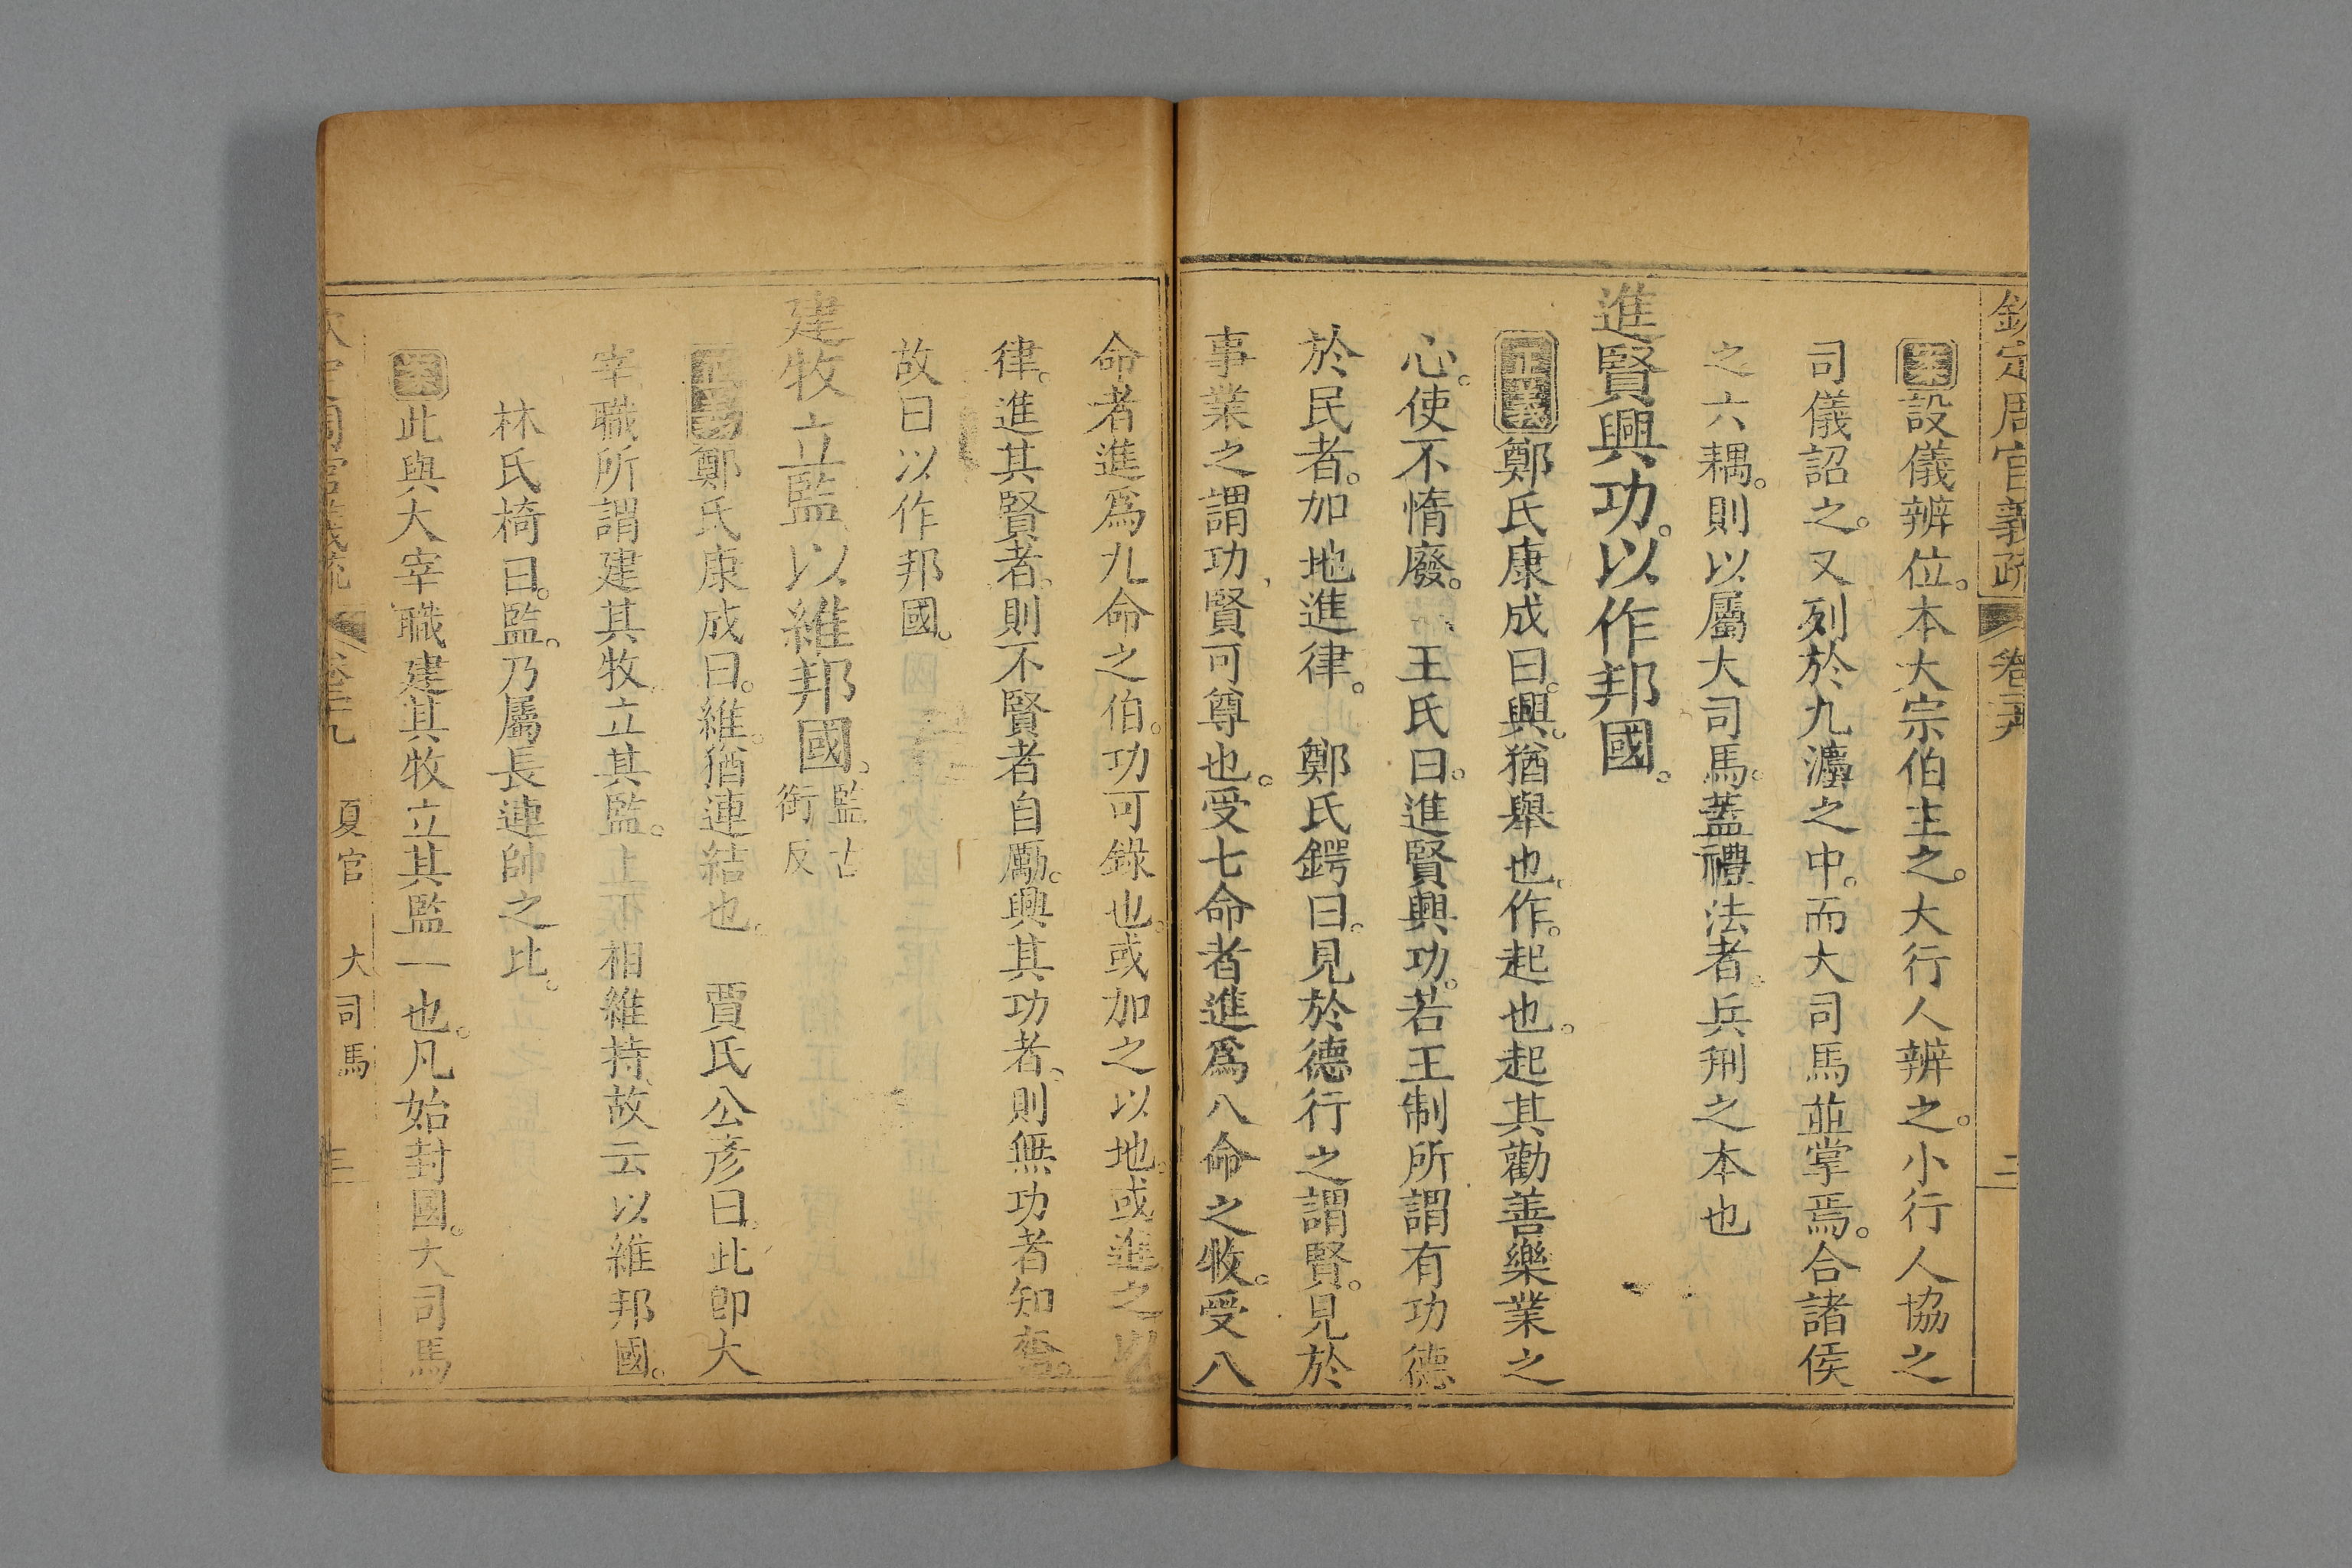 欽定周官義疏 卷二九 二
案設儀辨位。本大宗伯主之。大行人辨之。小行人協之
司儀詔之。又列於九灋之中。而大司馬並掌焉。合諸侯
之六耦。則以屬大司馬。蓋禮法者。兵刑之本也
進賢興功。以作邦國。
正義鄭氏康成曰。興。猶舉也。作。起也。起其勸善樂業之
心。使不惰廢。 王氏曰。進賢興功。若王制所謂有功德
於民者。加地進律。 鄭氏鍔曰。見於德行之謂賢。見於
事業之謂功、賢可尊也。受七命者進爲八命之牧。受八
命者進爲九命之伯。功可錄也。或加之以地。或進之以
律。進其賢者、則不賢者自勵。興其功者、則無功者知奮。
故曰以作邦國。
建牧立監、以維邦國。監古
銜反
正義鄭氏康成曰。維。猶連結也。 賈氏公彥曰。此卽大
宰職所謂建其牧、立其監。上下相維持、故云以維邦國。
林氏椅曰。監。乃屬長連帥之比。
案此與大宰職建其牧立其監一也。凡始封國。大司馬
欽定周官義疏 卷二九 夏官 大司馬 三